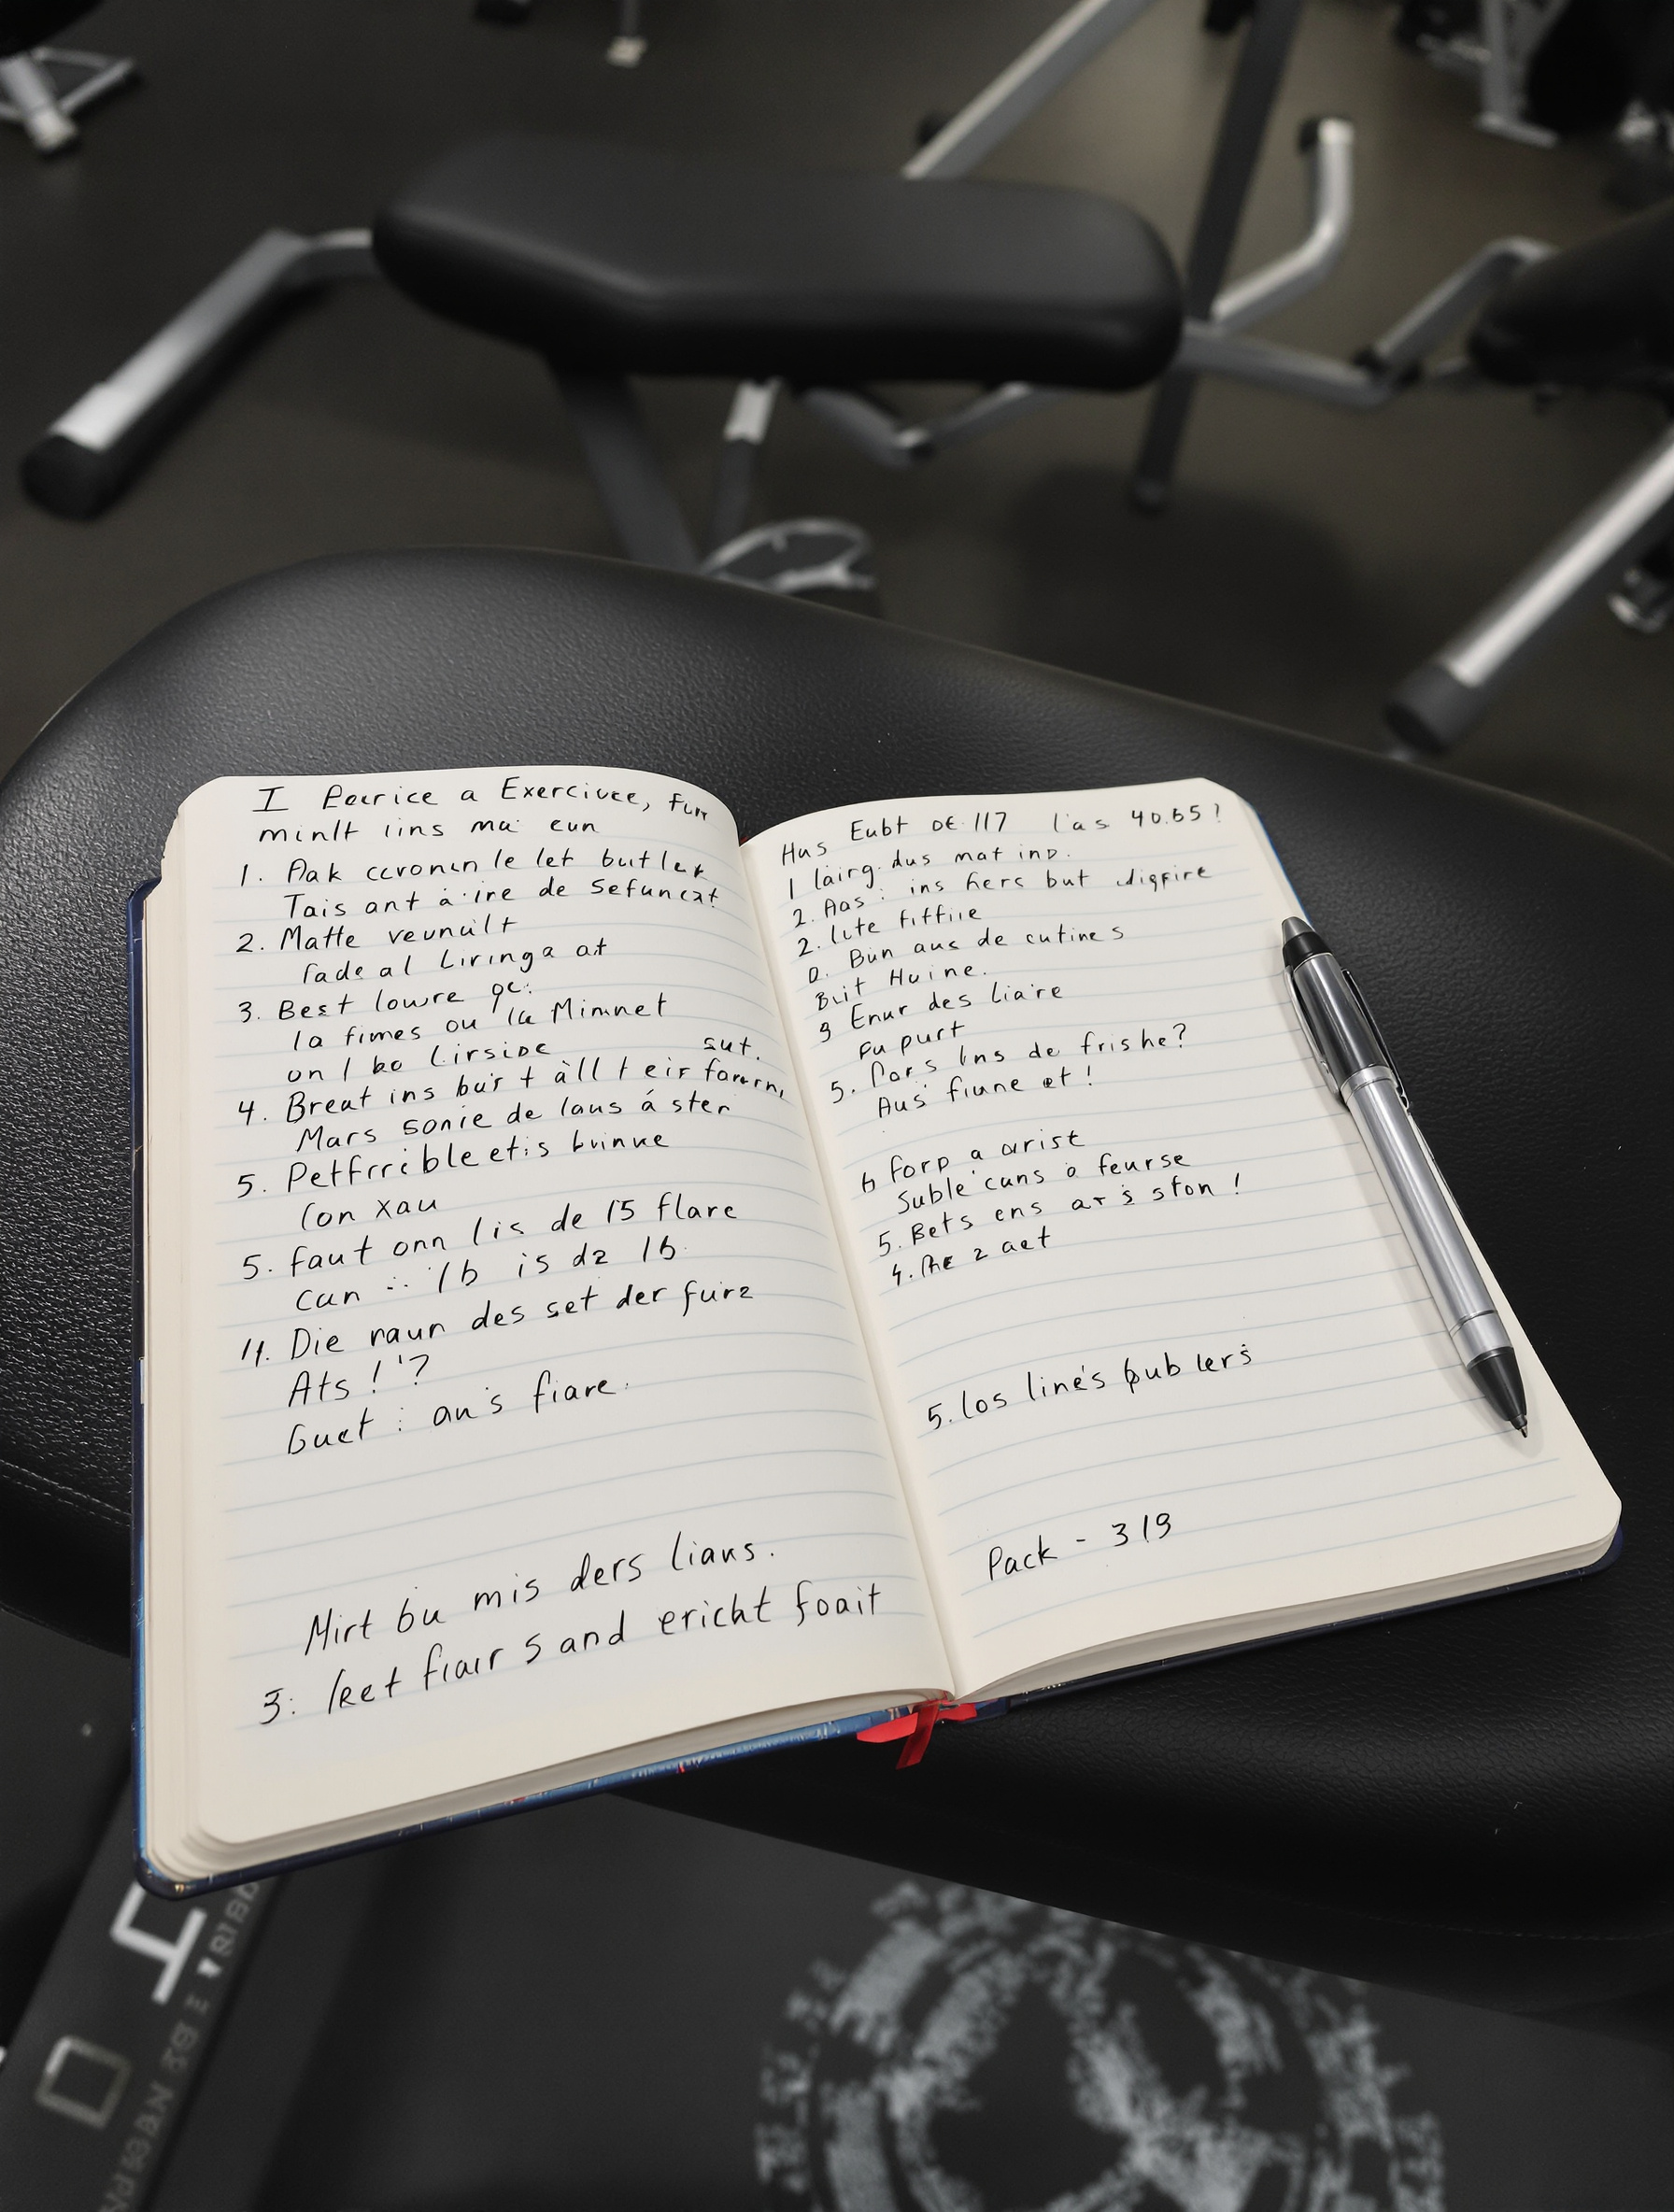 I Pourice a Exerciuee, furr
minlt iins ma eun
1. Aak ccronin le let butler
Tais ant à ire de sefuncat
2. Matte veunuilt
fade al Liringa at
3. Best lowre qc.
la fimes ou la Mimnet
on l bo Lirside
sut.
4. Breat ins bair t àll t eir
Mars sonie de laus á ster
5. Petfrrcible etis buinue
Con xau
5. faut onn lis de 15 flare
can 1b is dz 1b
11. Die raun des set der furz
Ats ! '?
Guet : an's fiare.
Mirt bu mis ders liaus.
3: leet fiair 5 and ericht foait
Hus Eubt DE 117 l'as 40.65?
1 lairg. dus mat inp.
2. Aas: ins hers but
2. lite fiffiie
0. Bun aus de cutines
Buit Huine.
9 Enur des liaire
Fu purt
5. Pors Ins de frishe?
Aus fiune et!
6 Forp a arist
Suble cuns a feurse
5. Bets ens ar s ston!
4. Ae 2 aet
5. los linés publers
Pack - 319